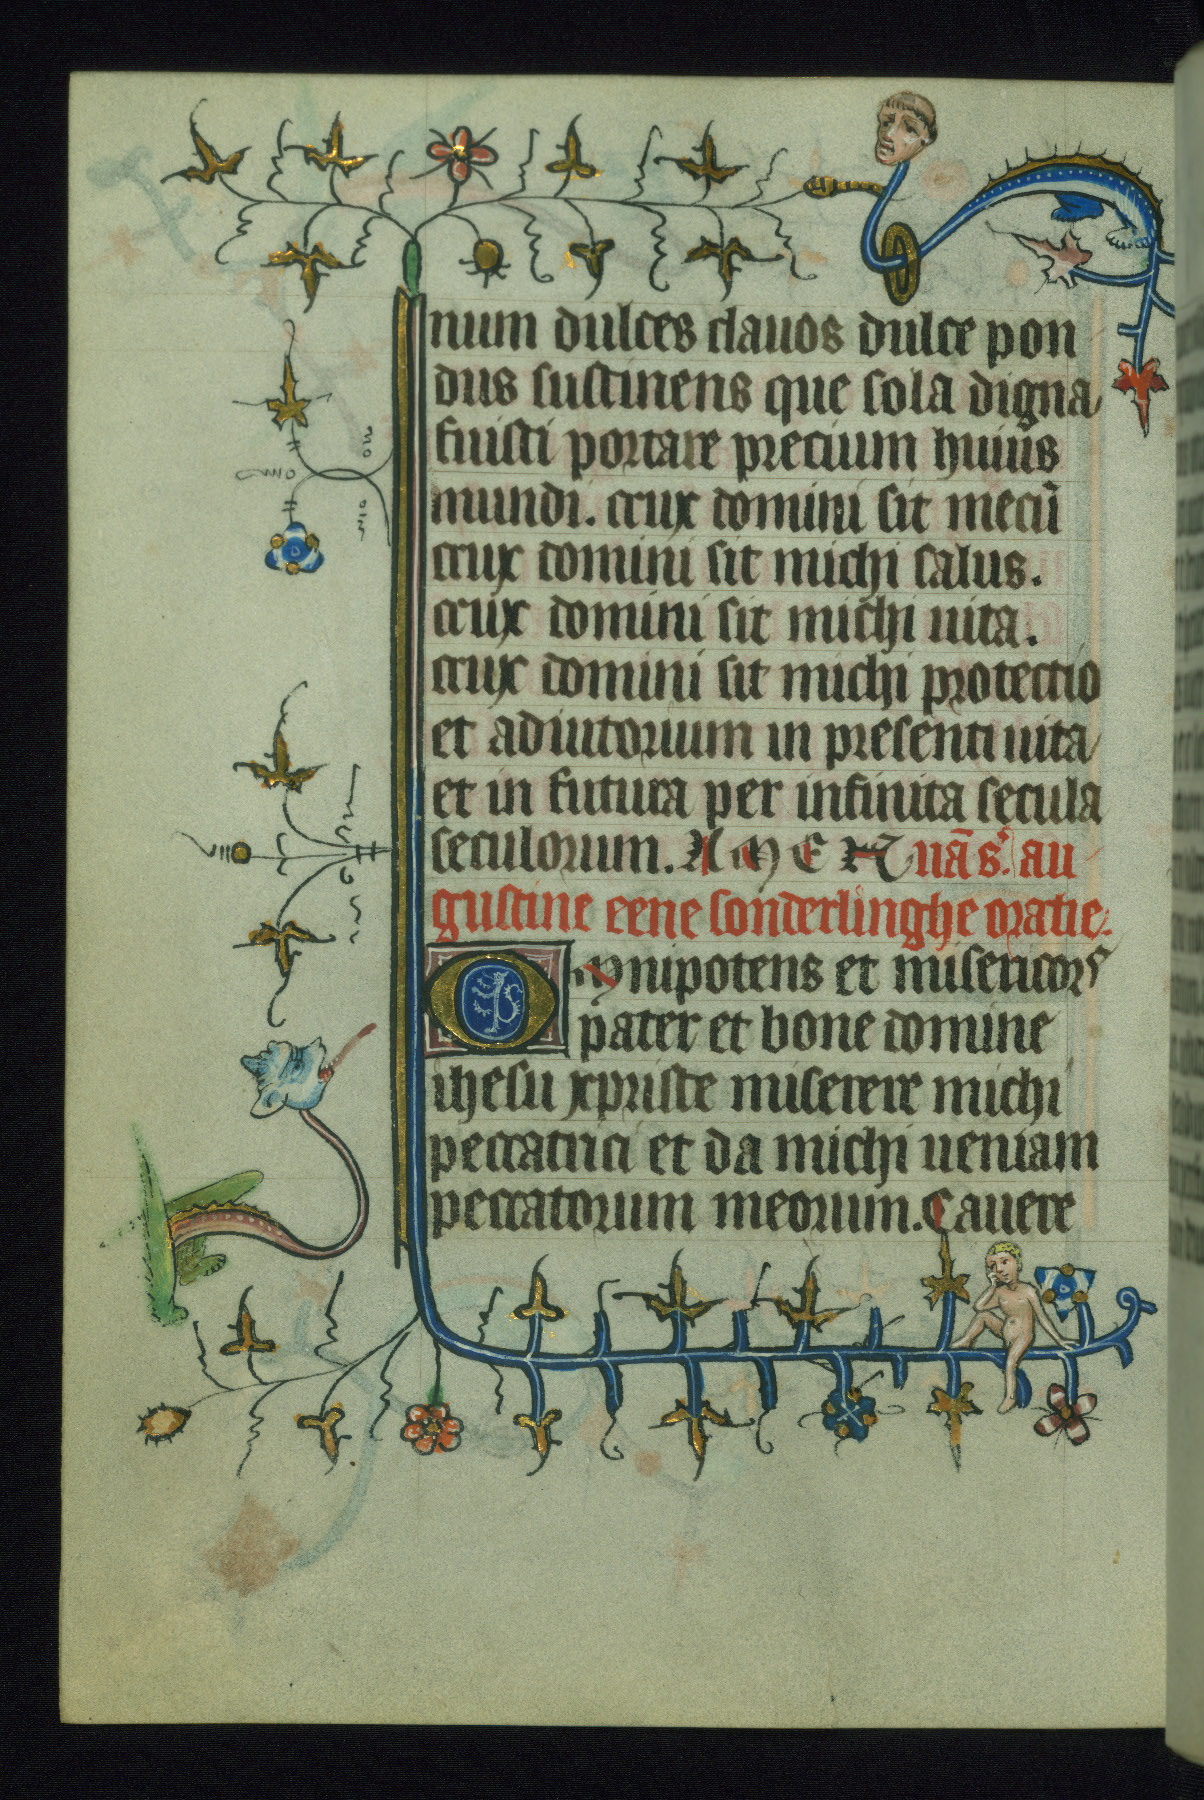 num dulces clauos dulce pon
dus sustinens que sola digna
fuisti portare precium huius
mundi. crux domini sit mecū
crux domini sit michi salus.
crux domini sit michi uita.
crux domini sit michi protectio
et adiutorium in presenti uita
et in futura per infinita secula
seculorum. AMEN uā s. au
gustine eene sonderlinghe oratie.
Omnipotens et misericors
pater et bone domine
ihesu xpriste miserere michi
peccatrici et da michi ueniam
peccatorum meorum. Cauere